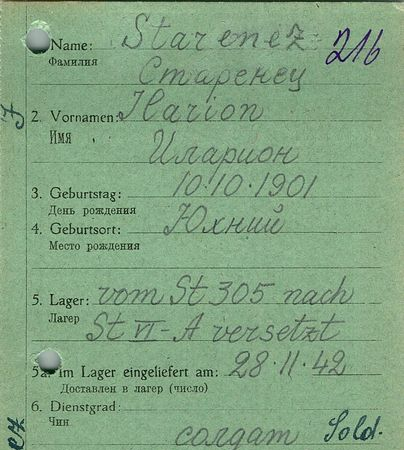 Name: Starenez 216
Фамилия Старенец
2. Vornamen: Ilarion
Имя Иларион
3. Geburtstag: 10.10.1901
День рождения
4. Geburtsort: Юхний
Место рождения
5. Lager: vom St 305 nach
Лагер St VI-A versetzt
5a. im Lager eingeliefert am: 28.11.42
Доставлен в лагер (число)
6. Dienstgrad:
Чин солдат Sold.